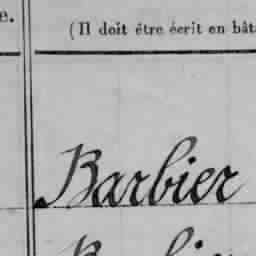 e.
(Il doit être écrit en bât
Barbier